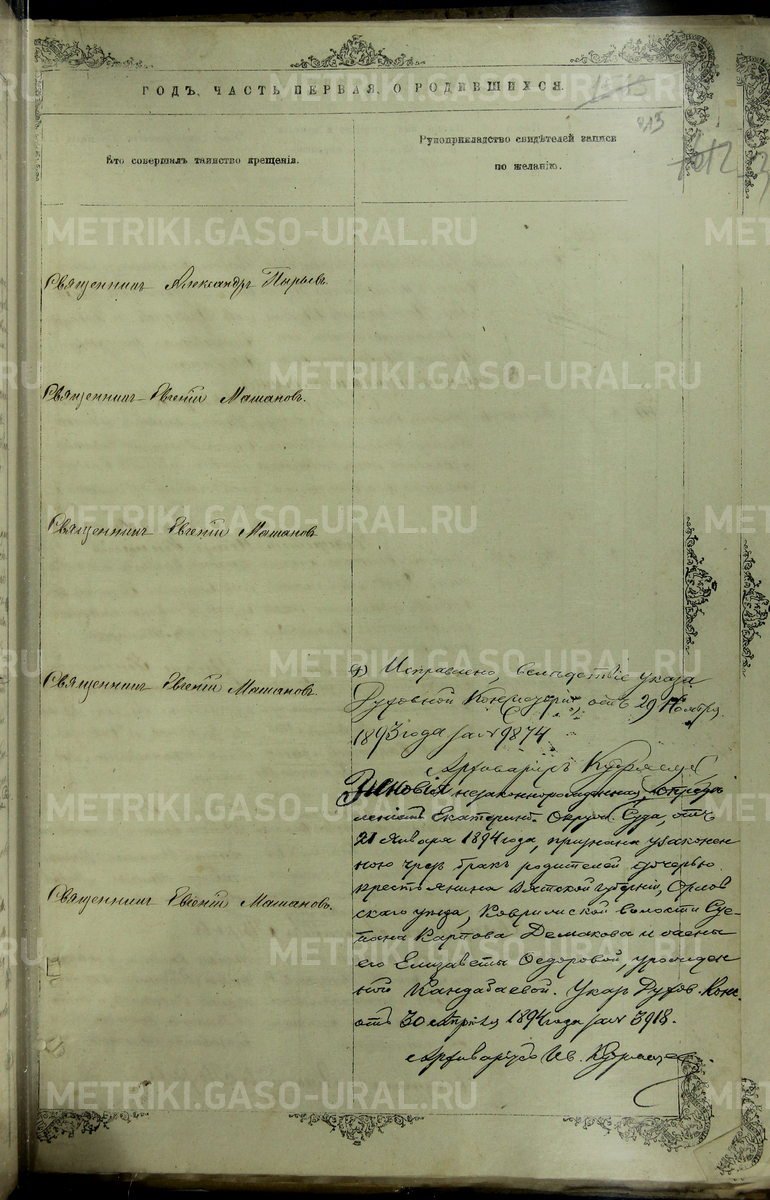 ГОДЪ, ЧАСТЬ ПЕРВАЯ, О РОДИВШИХСЯ.
213
Кто совершалъ таинство крещенія.
Рукоприкладство свидѣтелей записи
по желанію.
Священникъ Александръ Пырьевъ
Священникъ Евгеній Машановъ.
Священникъ Евгеній Машановъ
Священникъ Евгеній Машановъ.
Исправлено, вслѣдствіе указа
Духовной Консисторіи отъ 29 Ноября
1893 года за № 9874
Архиваріусъ
Зиновія незаконнорожденная, опредѣ
леніемъ Екатеринб. Окружн. Суда, отъ
21 Января 1894 года, признана узаконен
ною чрезъ бракъ родителей дочерью
крестьянина Вятской губерніи, Орлов
скаго уѣзда, волости Сте-
пана Карпова Демакова и жены
его Елизаветы Ѳедоровой, урожден
ной Кандабаевой. Указъ Духов. Конс.
отъ 30 Апрѣля 1894 года за № 3918.
Архиваріусъ Ив.
Священникъ Евгеній Машановъ.
METRIKI.GASO-URAL.RU